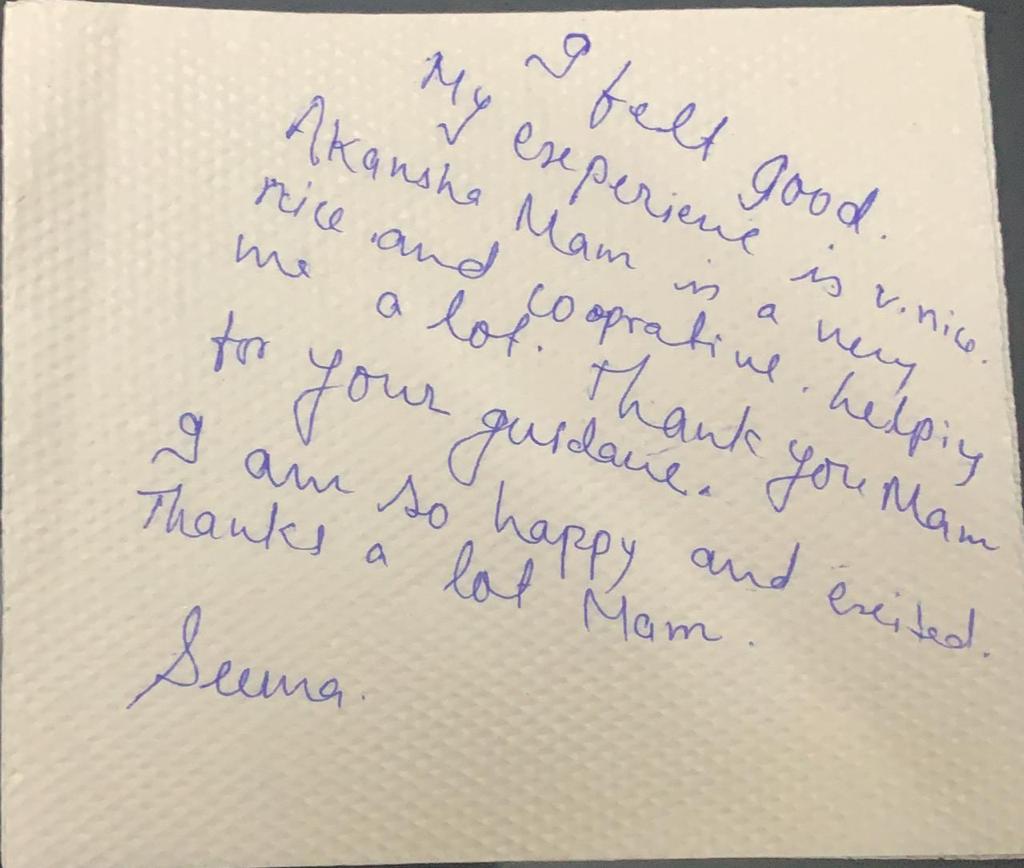 I felt good.
My experience is v. nice.
Akansha Mam is a very
nice and cooprative. helping
me a lot. Thank you Mam
for your guidance.
I am so happy and excited.
Thanks a lot Mam.
Seema.